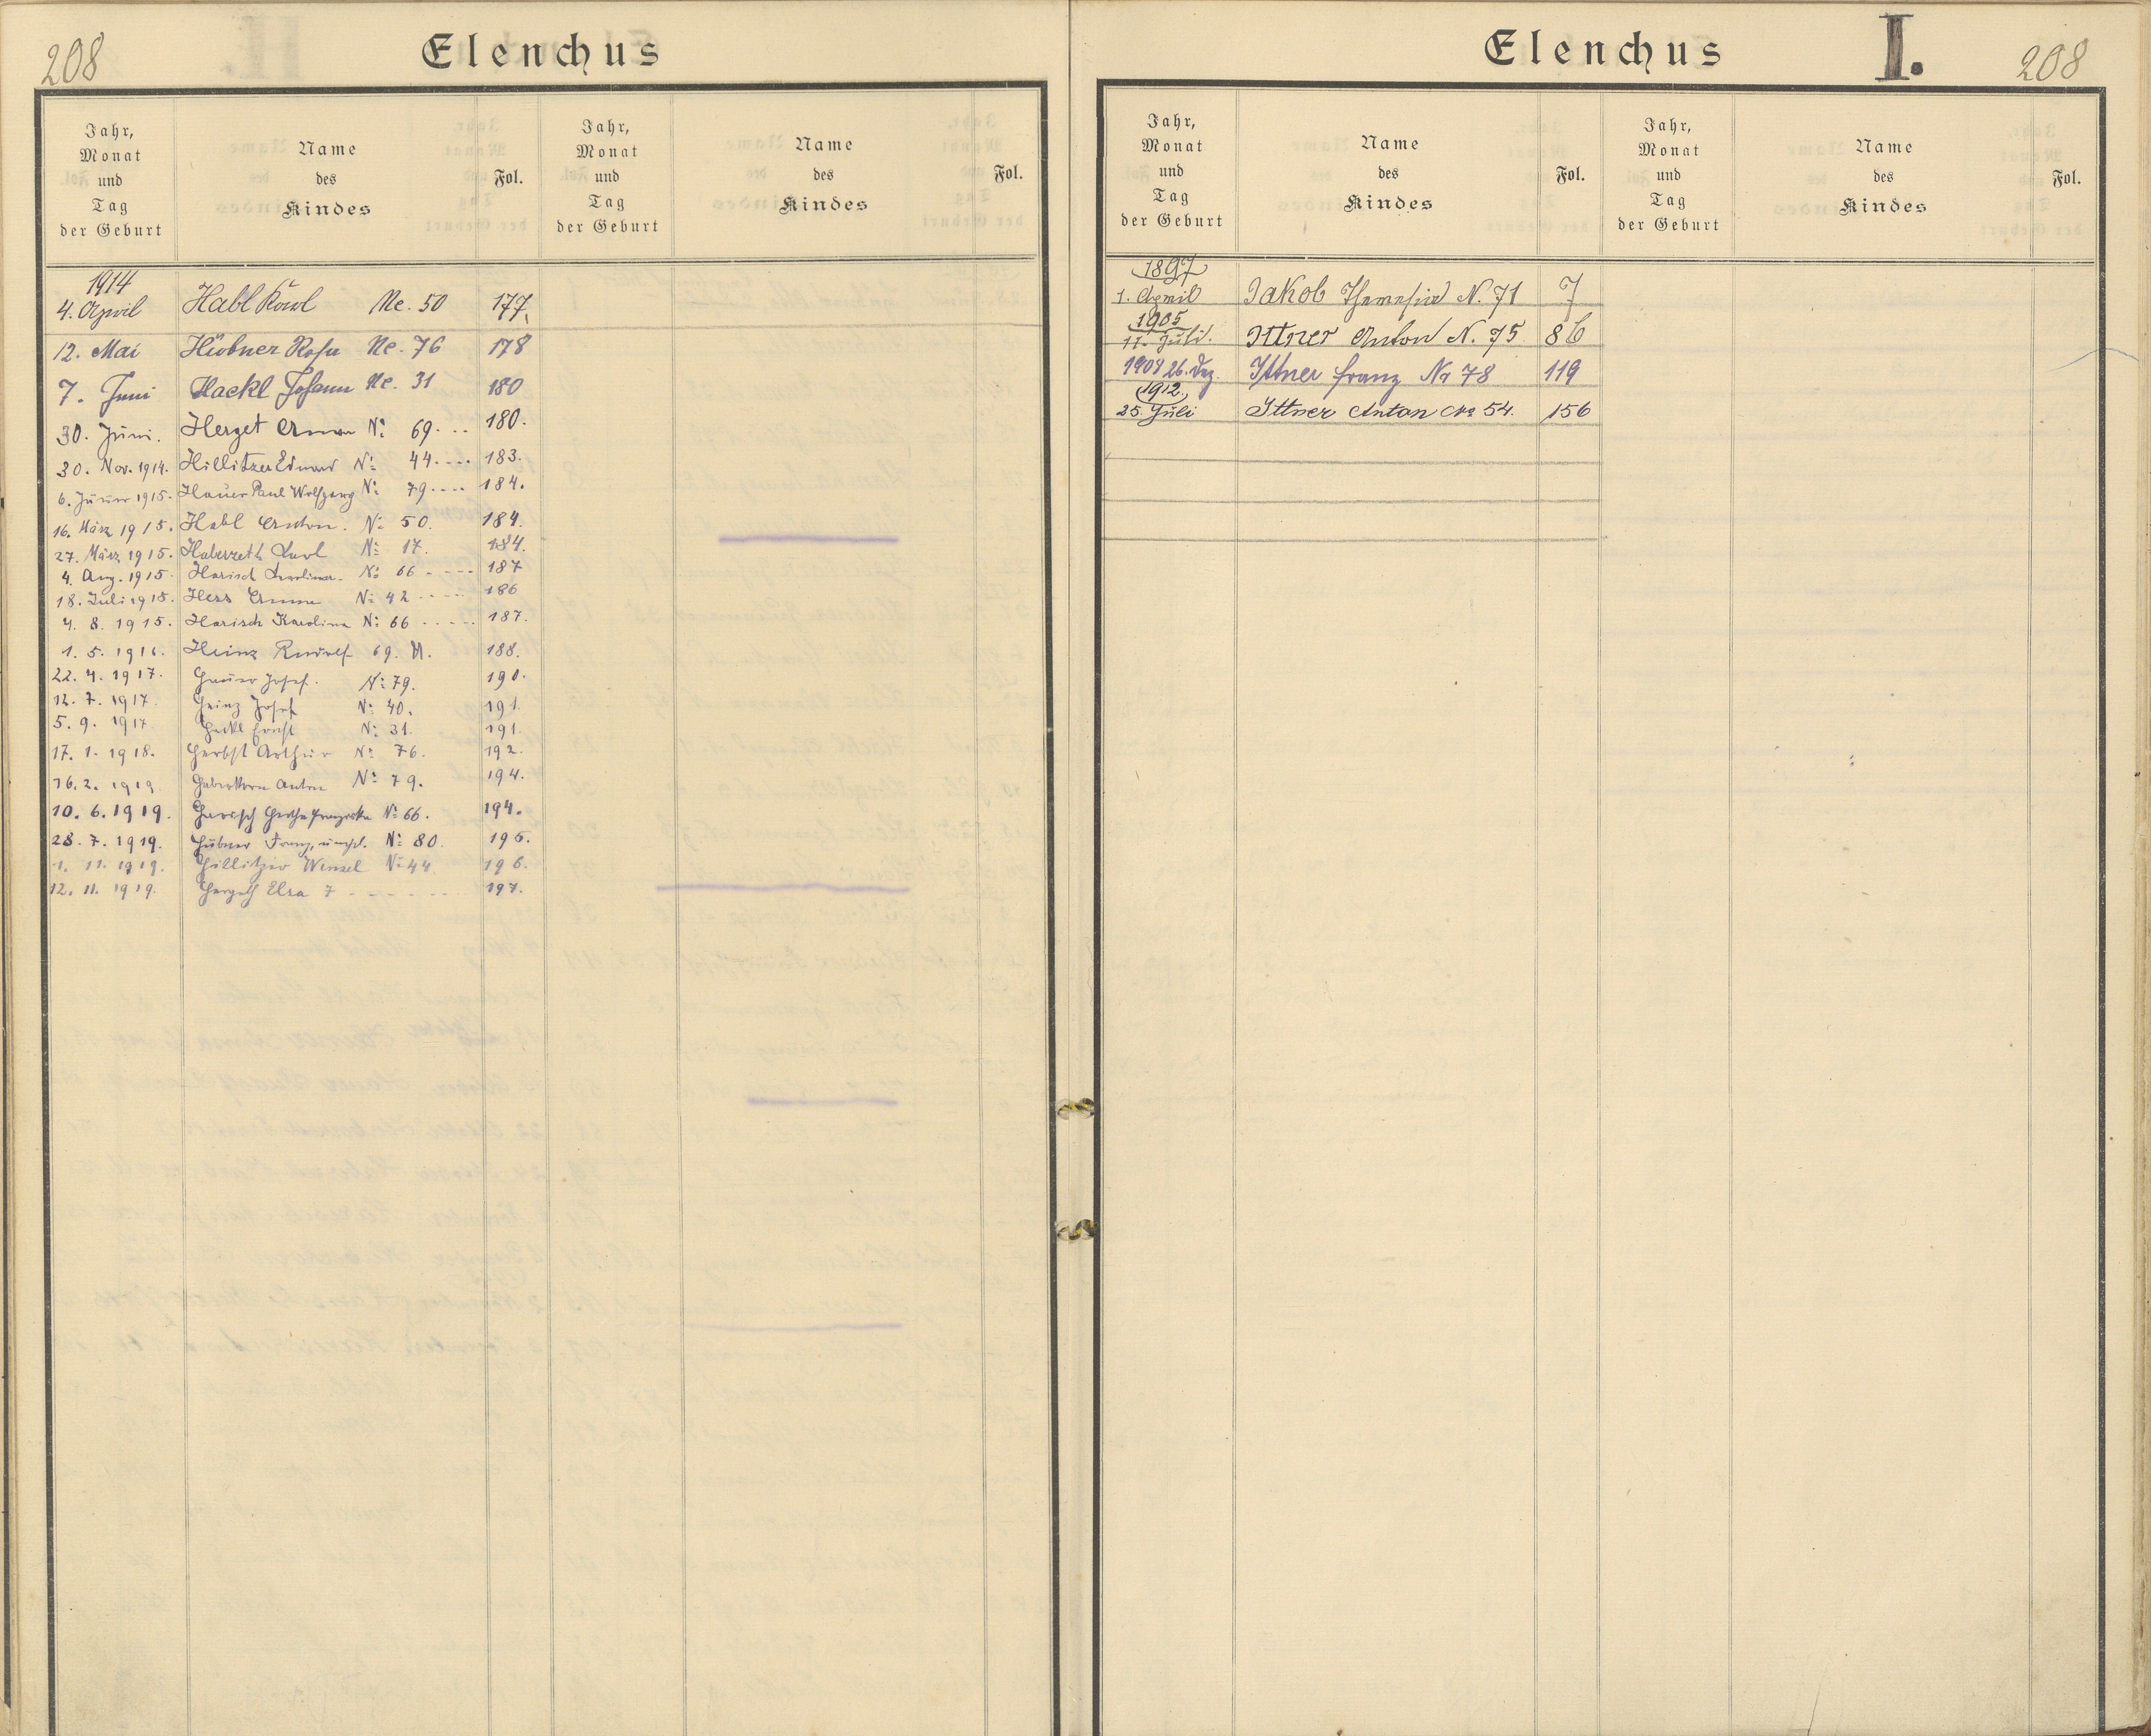 208
Elenchus
Jahr,
Monat
und
Tag
der Geburt
Name
des
Kindes
Fol.
Jahr,
Monat
und
Tag
der Geburt
Name
des
Kindes
Fol.
1914
4. April Habl Karl Ne. 50 177.
12. Mai Hübner Rosa Ne. 76 178
7. Juni Hackl Johann Ne. 31 180
30. Juni. Herget Erman N: 69... 180.
30. Nov. 1914. Hillitzer Eduard N: 44.... 183.
6. Jänner 1915. Hauer Paul Wolfgang N: 79.... 184.
16. März 1915. Habl Anton. N: 50. 184.
27. März 1915. Haberzeth Karl N: 17. 184.
4. Aug. 1915. Harisch Karolina. N: 66 187
18. Juli 1915. Hess Emma N: 42 186
4. 8. 1915. Harisch Karolina N: 66 187.
1. 5. 1916. Heinz Rudolf 69. 188.
22. 4. 1917. Hauer Josef. N: 79. 190.
12. 7. 1917. Heinz Josef N: 40. 191.
5. 9. 1917 Hackl Ernst N: 31. 191.
17. 1. 1918. Herbst Arthur N: 76. 192.
16. 2. 1919 Haberkorn Anton N: 79. 194.
10. 6. 1919. Harisch Hertha Franziska N: 66. 194.
28. 7. 1919. Hübner Franz, unehl. N: 80. 195.
1. 11. 1919. Hillitzer Wenzel N: 44. 196.
12. 11. 1919. Hergeth Elsa 7 197.
Elenchus
I.
208
Jahr,
Monat
und
Tag
der Geburt
Name
des
Kindes
Fol.
Jahr,
Monat
und
Tag
der Geburt
Name
des
Kindes
Fol.
1897
1. April Jakob Theresia N. 71 7
1905
11. Juli. Ittner Anton N. 75 86
1908 26. Dez. Ittner Franz Nr 78 119
1912.
25. Juli Ittner Anton No 54. 156